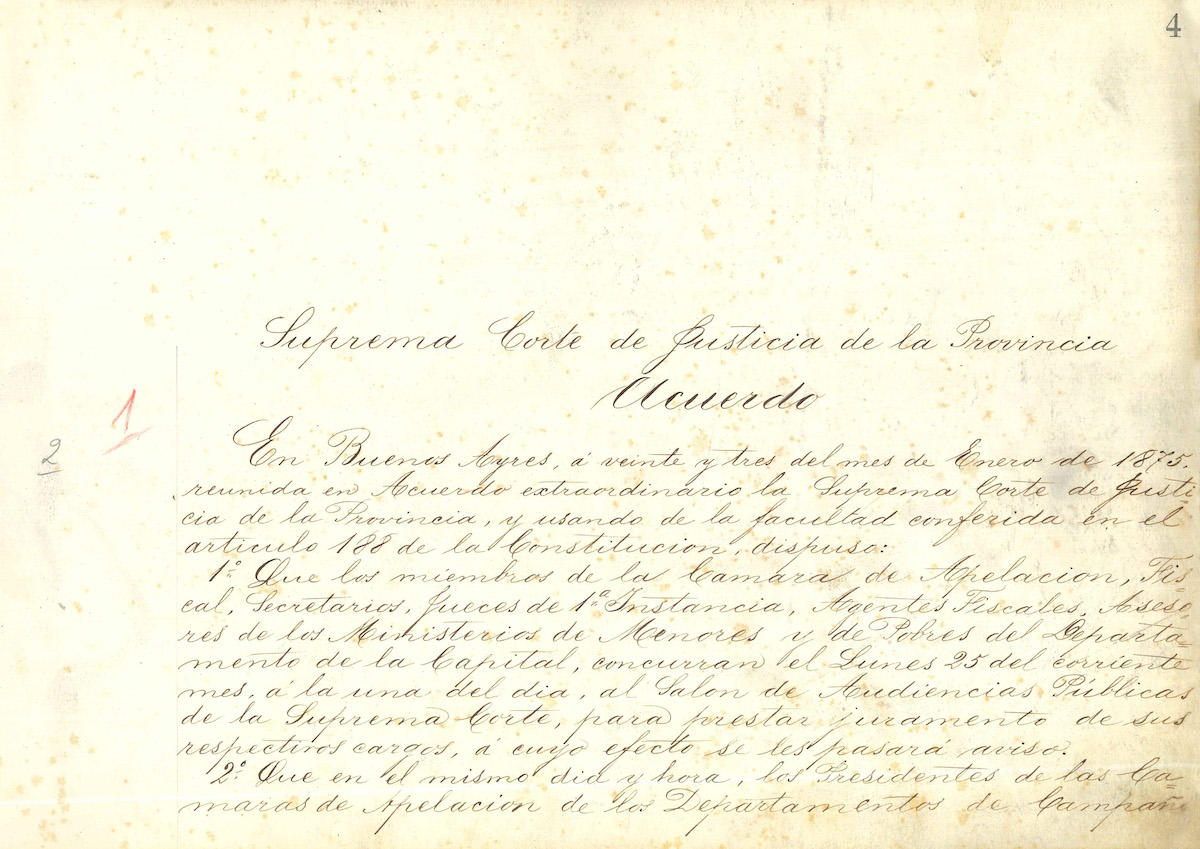 4
Suprema Corte de Justicia de la Provincia
Acuerdo
1
2
En Buenos Ayres, á veinte y tres del mes de Enero de 1875.
reunida en Acuerdo extraordinario la Suprema Corte de Justi-
cia de la Provincia, y usando de la facultad conferida en el
articulo 188 de la Constitucion, dispuso:
1º Que los miembros de la Camara de Apelacion, Fis-
cal, Secretarios, Jueces de 1ª Instancia, Agentes Fiscales, Aseso
res de los Ministerios de Menores y de Pobres del Departa-
mento de la Capital, concurran el Lunes 25 del corriente
mes, á la una del dia, al Salon de Audiencias Públicas
de la Suprema Corte, para prestar juramento de sus
respectivos cargos, á cuyo efecto se les pasará aviso.
2º Que en el mismo dia y hora, los Presidentes de las Ca-
maras de Apelacion de los Departamentos de Campañ